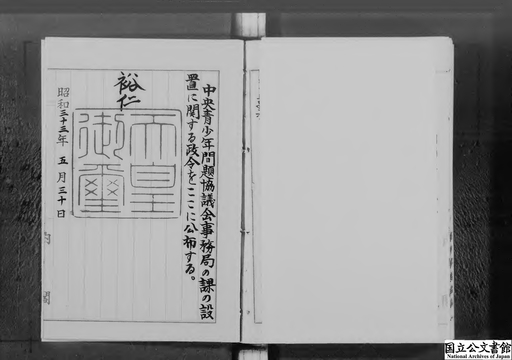 中央青少年問題協議会事務局の課の設
置に関する政令をここに公布する。
裕仁
天皇
御璽
昭和三十三年 五月三十日
内閣
国立公文書館
National Archives of Japan